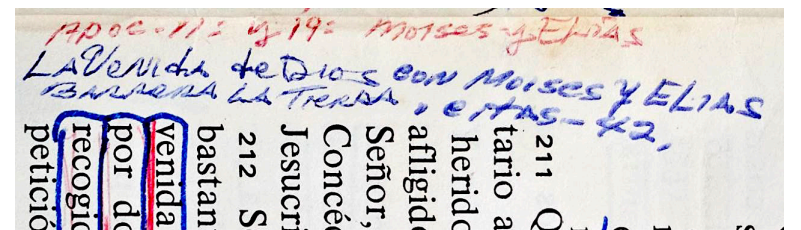 Apoc-11: y 19: Moises y Elias
LA Venida de Dios con Moises y ELIAS
BARRERA LA TIERRA, e
211 Q
tario a
herido
afligido
Señor,
Concéd
Jesucri
212 S
bastan
venida
por do
recogid
petició